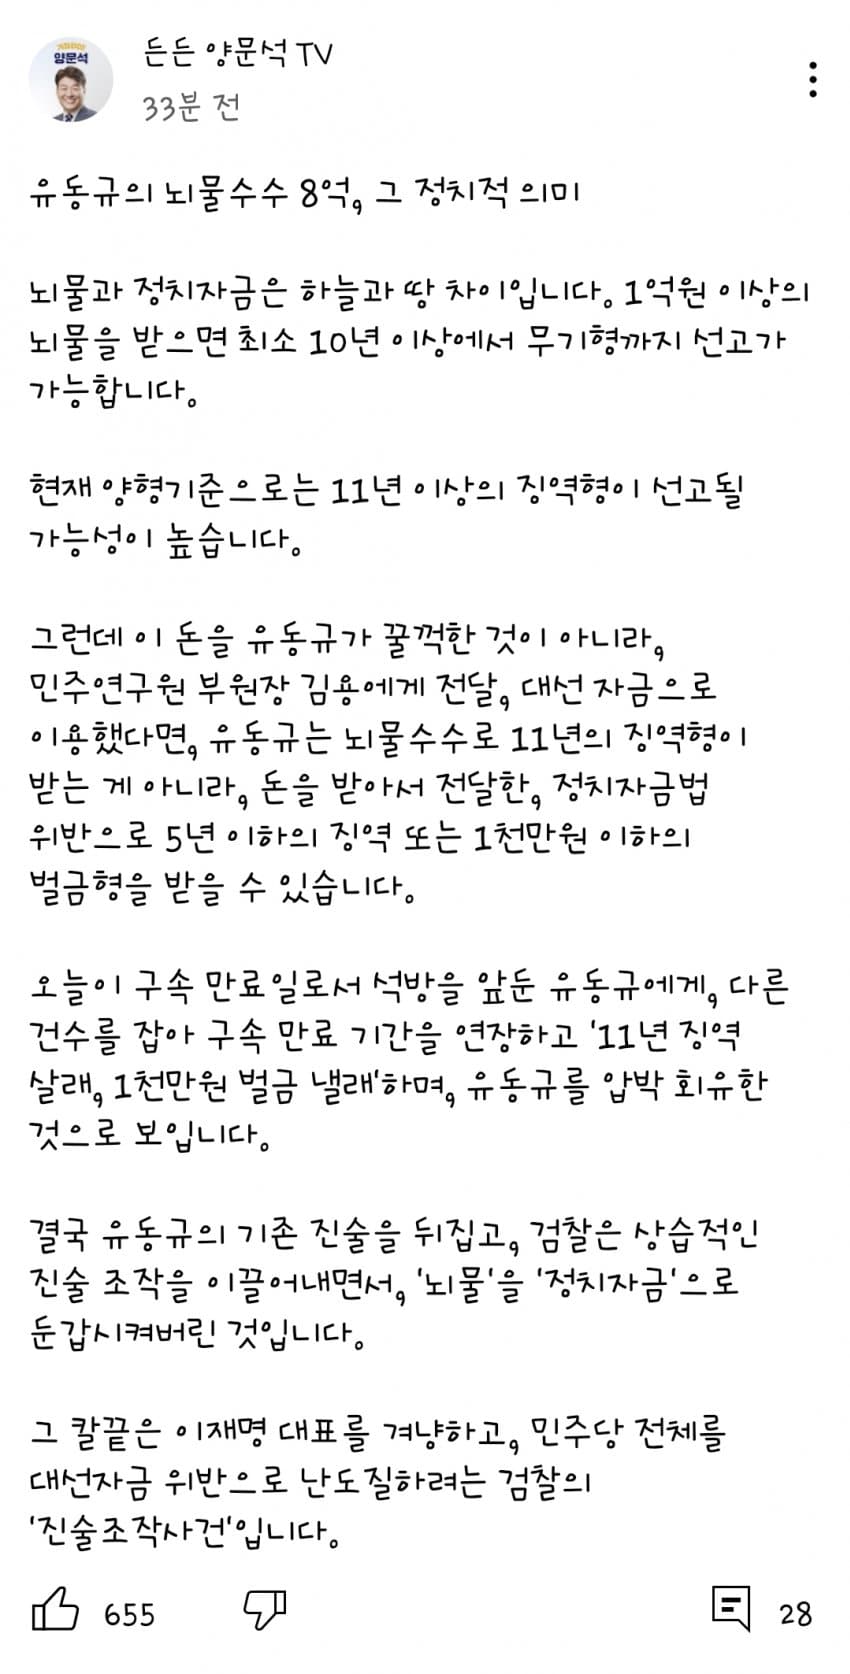 기호1번
양문석
든든 양문석 TV
33분 전
유동규의 뇌물수수 8억, 그 정치적 의미
뇌물과 정치자금은 하늘과 땅 차이입니다. 1억원 이상의
뇌물을 받으면 최소 10년 이상에서 무기형까지 선고가
가능합니다.
현재 양형기준으로는 11년 이상의 징역형이 선고될
가능성이 높습니다.
그런데 이 돈을 유동규가 꿀꺽한 것이 아니라,
민주연구원 부원장 김용에게 전달, 대선 자금으로
이용했다면, 유동규는 뇌물수수로 11년의 징역형이
받는 게 아니라, 돈을 받아서 전달한, 정치자금법
위반으로 5년 이하의 징역 또는 1천만원 이하의
벌금형을 받을 수 있습니다.
오늘이 구속 만료일로서 석방을 앞둔 유동규에게, 다른
건수를 잡아 구속 만료 기간을 연장하고 '11년 징역
살래, 1천만원 벌금 낼래'하며, 유동규를 압박 회유한
것으로 보입니다.
결국 유동규의 기존 진술을 뒤집고, 검찰은 상습적인
진술 조작을 이끌어내면서, '뇌물'을 '정치자금'으로
둔갑시켜버린 것입니다.
그 칼끝은 이재명 대표를 겨냥하고, 민주당 전체를
대선자금 위반으로 난도질하려는 검찰의
'진술조작사건'입니다.
655
28